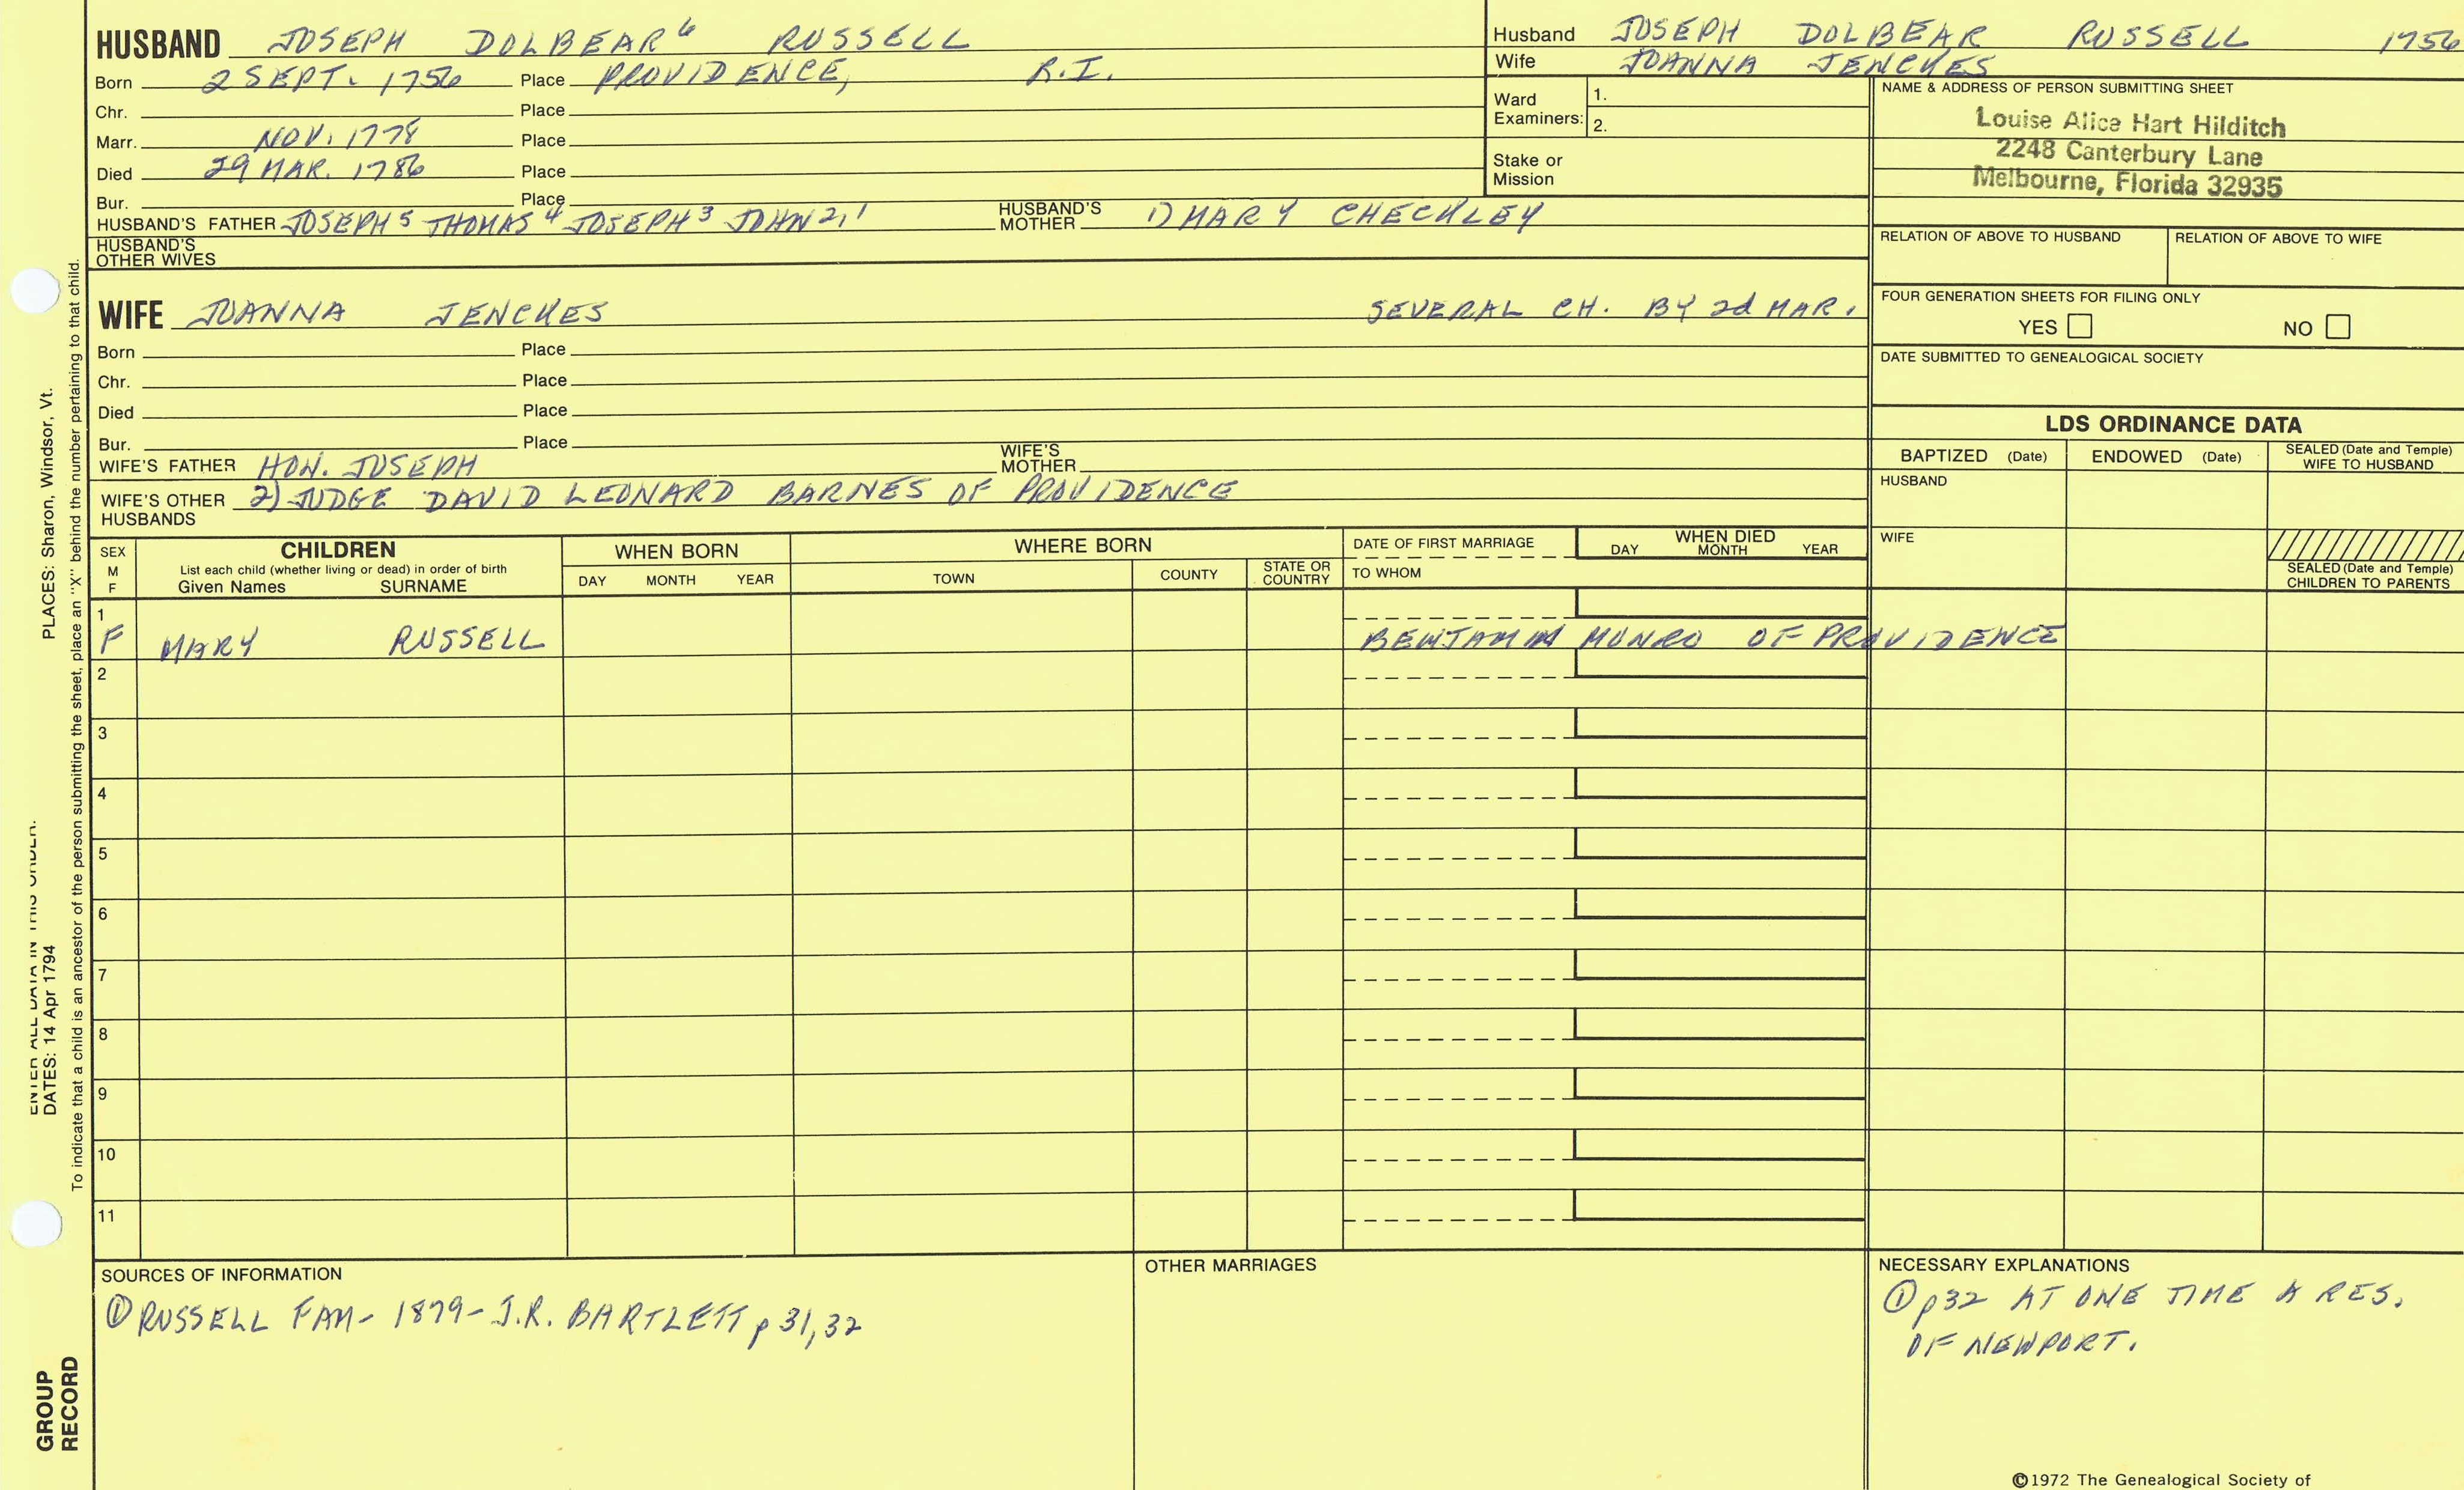 HUSBAND JOSEPH DOLBEAR⁶ RUSSELL
Born 2 SEPT. 1756 Place PROVIDENCE, R.I.
Chr. Place
Marr. NOV. 1778 Place
Died 29 MAR. 1786 Place
Bur. Place
HUSBAND'S FATHER JOSEPH⁵ THOMAS⁴ JOSEPH³ JOHN²,¹ HUSBAND'S MOTHER 1) MARY CHECKLEY
HUSBAND'S OTHER WIVES
Husband JOSEPH DOLBEAR RUSSELL 1756
Wife JOANNA JENCKES
Ward Examiners: 1.
2.
Stake or Mission
NAME & ADDRESS OF PERSON SUBMITTING SHEET
Louise Alice Hart Hilditch
2248 Canterbury Lane
Melbourne, Florida 32935
RELATION OF ABOVE TO HUSBAND RELATION OF ABOVE TO WIFE
FOUR GENERATION SHEETS FOR FILING ONLY
YES NO
DATE SUBMITTED TO GENEALOGICAL SOCIETY
WIFE JOANNA JENCKES SEVERAL CH. BY 2d MAR.
Born Place
Chr. Place
Died Place
Bur. Place
WIFE'S FATHER HON. JOSEPH WIFE'S MOTHER
WIFE'S OTHER HUSBANDS 2) JUDGE DAVID LEONARD BARNES OF PROVIDENCE
LDS ORDINANCE DATA
BAPTIZED (Date) ENDOWED (Date) SEALED (Date and Temple) WIFE TO HUSBAND
HUSBAND
WIFE
SEALED (Date and Temple) CHILDREN TO PARENTS
SEX M F
CHILDREN
List each child (whether living or dead) in order of birth
Given Names SURNAME
WHEN BORN
DAY MONTH YEAR
WHERE BORN
TOWN COUNTY STATE OR COUNTRY
DATE OF FIRST MARRIAGE
TO WHOM
WHEN DIED
DAY MONTH YEAR
1
F MARY RUSSELL BENJAMIN MUNRO OF PROVIDENCE
2
3
4
5
6
7
8
9
10
11
SOURCES OF INFORMATION
① RUSSELL FAM- 1879- J.R. BARTLETT p 31,32
OTHER MARRIAGES
NECESSARY EXPLANATIONS
① p32 AT ONE TIME A RES.
OF NEWPORT.
©1972 The Genealogical Society of
PLACES: Sharon, Windsor, Vt.
ENTER ALL DATA IN THIS ORDER.
DATES: 14 Apr 1794
To indicate that a child is an ancestor of the person submitting the sheet, place an "X" behind the number pertaining to that child.
GROUP
RECORD